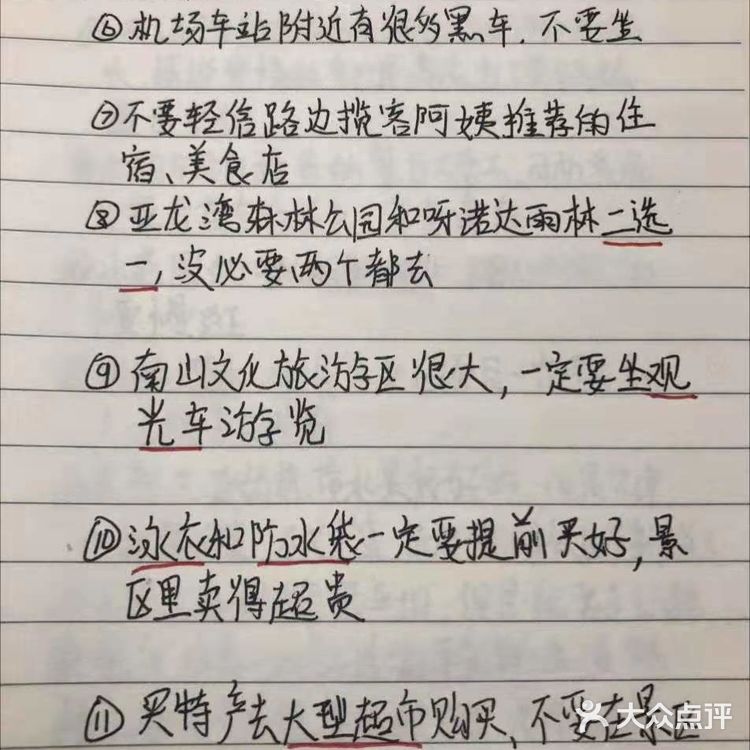 ⑥机场车站附近有很多黑车,不要坐
⑦不要轻信路边揽客阿姨推荐的住
宿、美食店
⑧亚龙湾森林公园和呀诺达雨林二选
一,没必要两个都去
⑨南山文化旅游区很大,一定要坐观
光车游览
⑩泳衣和防水袋一定要提前买好,景
区里卖得超贵
⑪买特产去大型超市购买,不要在景区
大众点评